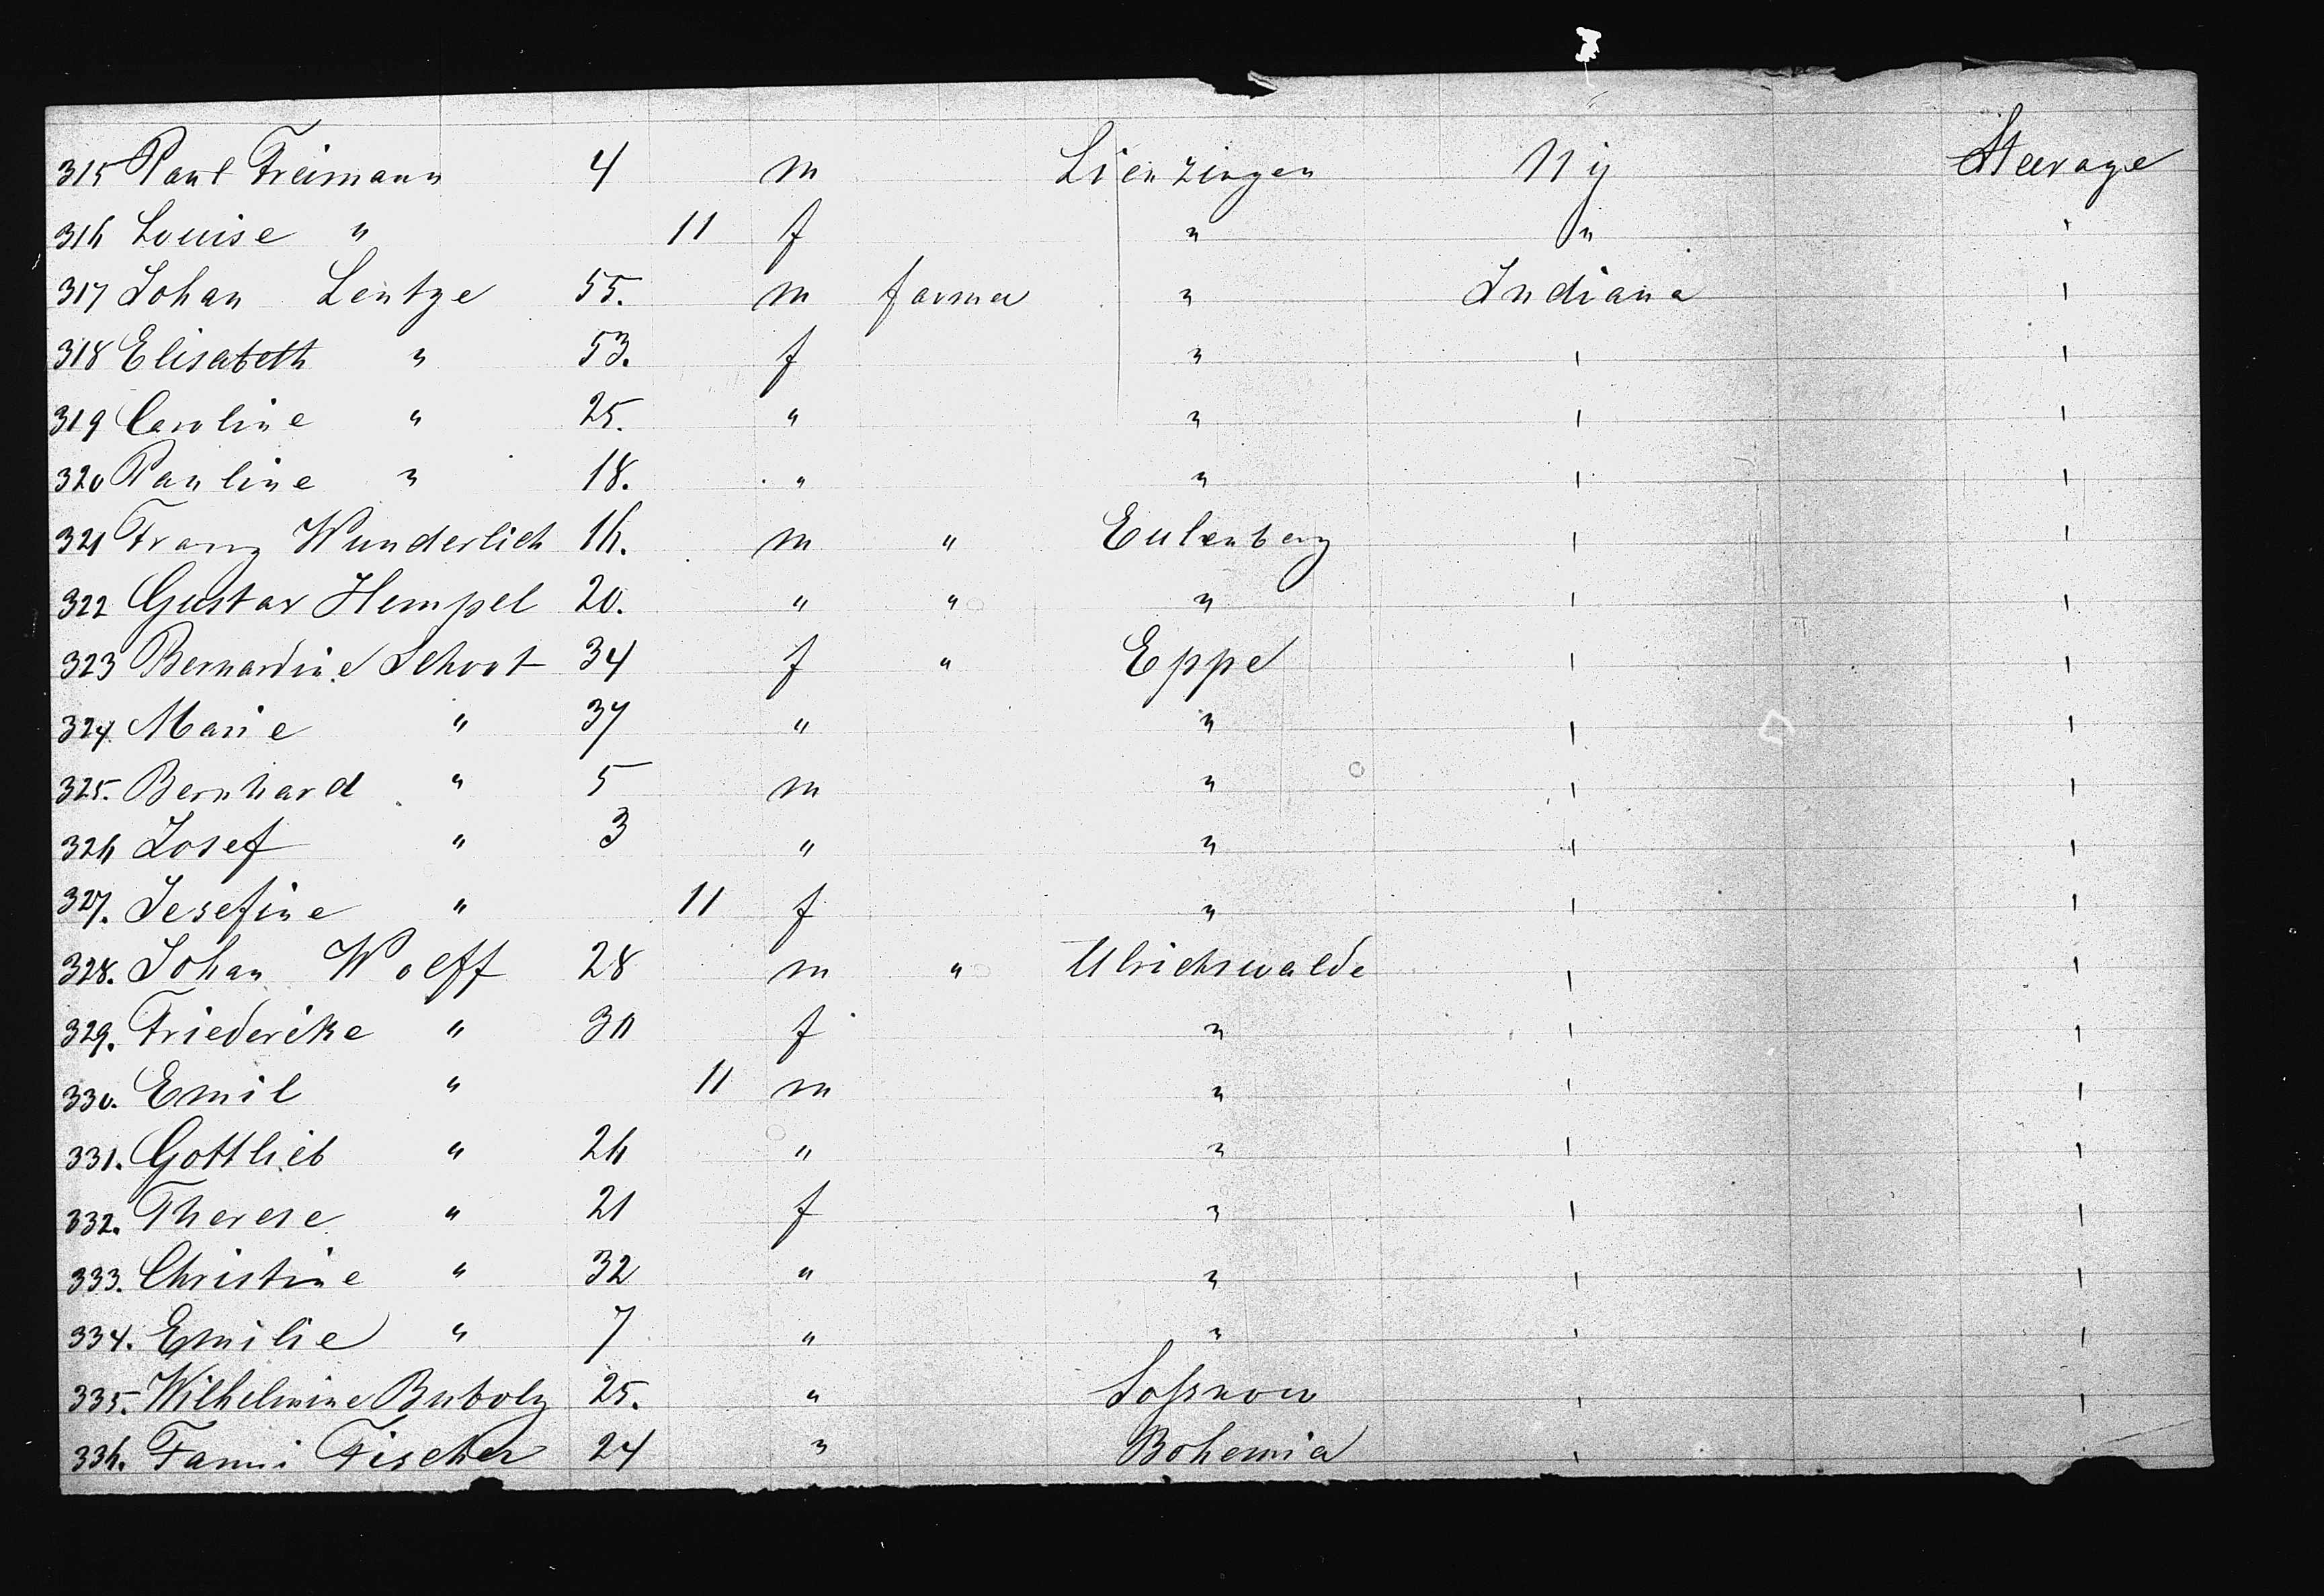 315 Paul Freimann 4 m Lienzingen Ny Steerage
316 Louise " 11 f " " '
317 Johan Lentze 55. m farmer " Indiana '
318 Elisabeth " 53. f " ' '
319 Caroline " 25. " " ' '
320 Pauline " 18. " " ' '
321 Franz Wunderlich 16. m " Eulenberg ' '
322 Gustav Hempel 20. " " " ' '
323 Bernardine Schoot 34 f " Eppe ' '
324. Marie " 37 " " ' '
325. Bernhard " 5 m " ' '
326 Josef " 3 " " ' '
327. Jesefine " 11 f " ' '
328. Johan Wolff 28 m " Ulrichswalde ' '
329. Friederike " 30 f " ' '
330. Emil " 11 m " ' '
331. Gottlieb " 26 " " ' '
332. Therese " 21 f " ' '
333. Christine " 32 " " ' '
334. Emilie " 7 " " ' '
335. Wilhelmine Bubolz 25. " Sossnow ' '
336. Fanni Fischer 24 " Bohemia '